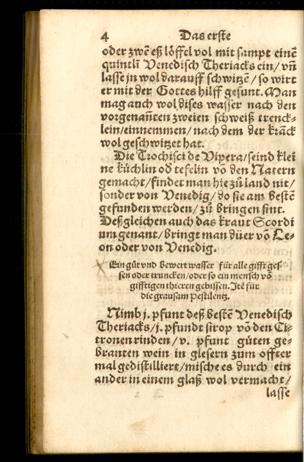 4 Das erste
oder zwē eß löffel vol mit sampt einē
quintli Venedisch Theriacks ein/ vñ
lasse jn wol darauff schwitzē / so wirt
er mit der Gottes hilff gesunt. Man
mag auch wol dises wasser nach den
vorgenañten zweien schweiß trenck-
lein/einnemmen/ nach dem der krāck
wol geschwitzet hat.
Die Trochisci de Vipera/ seind klei
ne küchlin od tefelin vō den Natern
gemacht/ findet man hie zů land nit/
sonder von Venedig/ do sie am bestē
gefunden werden/ zů bringen sint.
Deßgleichen auch das kraut Scordi
um genant/ bringt man
von Ce-
on oder von Venedig.
Ein gůt vnd bewert wasser für alle gifft gef-
sen oder truncken/ oder so ein mensch vō
gifftigen thieren gebissen. Itē für
die grausam Pestilentz.
Nimb j. pfunt deß bestē Venedisch
Theriacks/ j. pfundt sirop vō den Ci-
tronen rinden/ v. pfunt gůten ge-
branten wein in glesern zum offter
mal gedistilliert/ mische es durch ein
ander in einem glaß wol vermacht/
lasse